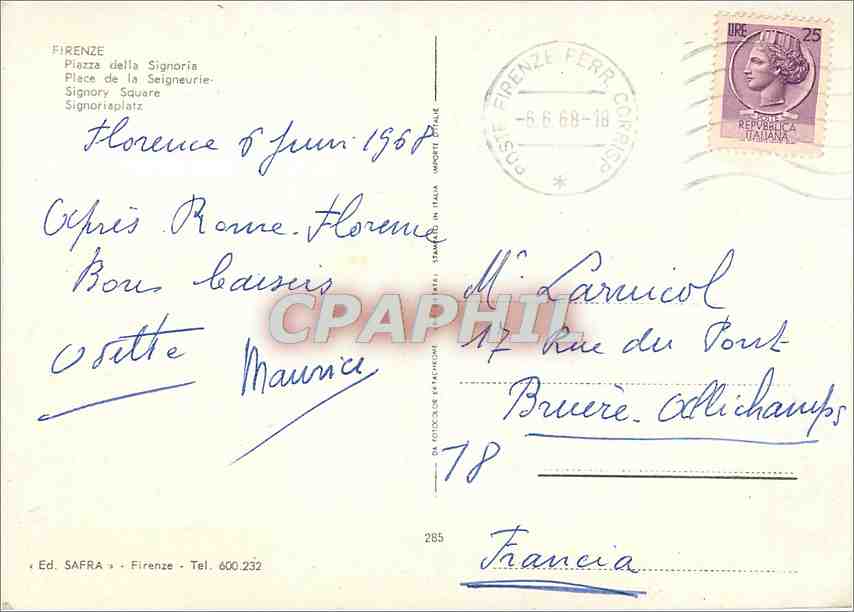 FIRENZE
Piazza della Signoria
Place de la Seigneurie-
Signory Square
Signoriaplatz
Florence 6 Juin 1968
Après Rome. Florence
Bons baisers
Odette
Maurice
« Ed. SAFRA » - Firenze - Tel. 600.232
DA FOTOCOLOR EKTACHROME
STAMPATO IN ITALIA IMPORTE D'ITALIE
285
POSTE FIRENZE FERR. CORRISP.
-6.6.68-18
*
LIRE 25
POSTE
REPVBBLICA
ITALIANA
CPAPHIL
Mr Larnicol
17 Rue du Pont
Bruère. Allichamps
18
Francia